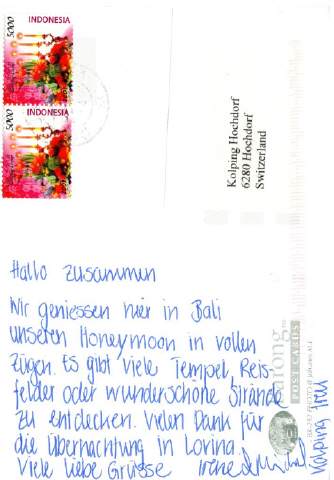 INDONESIA
5000
INDONESIA
5000
Kolping Hochdorf
6280 Hochdorf
Switzerland
Hallo zusammen
Wir geniessen hier in Bali
unseren Honeymoon in vollen
Zügen. Es gibt viele Tempel, Reis-
felder oder wunderschöne Strände
zu entdecken. Vielen Dank für
die Übernachtung in Lovina.
Viele liebe Grüsse
POST CARDS